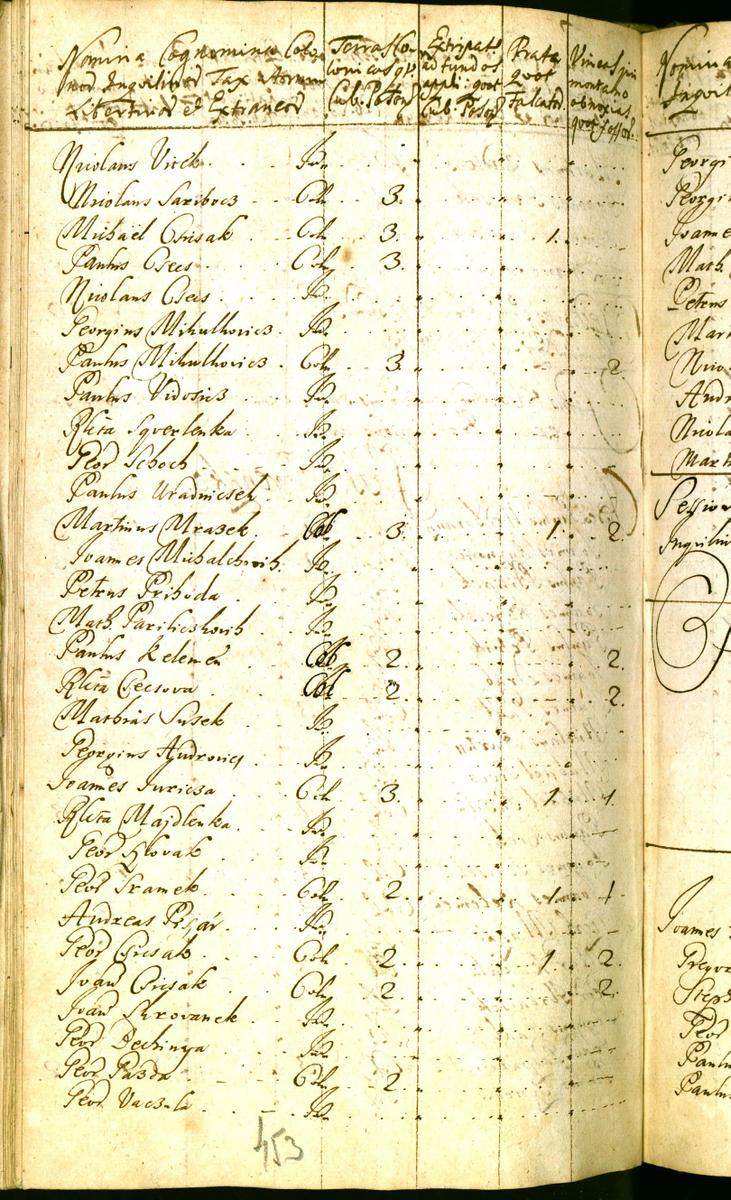 Nomina Cognomina Colo
nor Inquilinor Tax
Libertinor et Extraneor
Terras Co
lonicas qt
Cub. Poson
Extirpat
ad fundos
appli. quot
Cub. Poson
Prata
quot
Falcator
Vineas pro
montano
obnoxias
quot fossor.
Nicolaus Vicek Inq
Nicolaus Col. 3.
Michael Crisak Col. 3. 1.
Paulus Csecs Col. 3.
Nicolaus Csecs Inq
Georgius Mihulkovics Inq
Paulus Mihulkovics Col. 3. 2.
Paulus Vidosics Inq
Relicta Sqverlenka Inq
Geor Schoch Inq
Paulus Uradnicsek Inq
Martinus Mrazek Col 3. 1. 2.
Joannes Michalchovih Inq
Petrus Prihoda Inq
Math Inq
Paulus Kelemen Col 2. 2.
Relicta Csecsova Col 2. 2.
Mathias Susek Inq
Georgius Androvics Inq
Joannes Juricza Col. 3. 1. 1.
Relicta Majdlenka Inq
Geor Slovak Inq
Geor Sramek Col. 2. 1. 1
Andreas Pisár Inq
Geor Crisak Col. 2 1. 2.
Ivan Crisak Col. 2. 2.
Ivan Skrovanek Inq
Geor Dechinya Inq
Geor Pazda Col. 2.
Geor Vaczula Inq
453
Nomina
Inquil
Georgi
Georgi
Joanne
Math.
Petrus
Mart
Nico
Andr
Nicola
Mart
Session
Inquilin
Joannes
Gregor
Steph
Geor
Paulu
Paulu